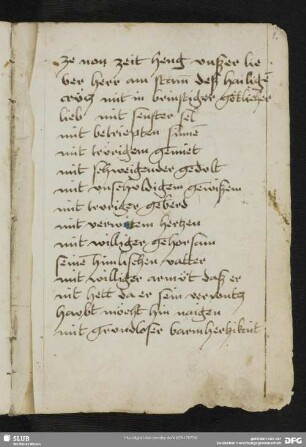 ze non zeit heng vnsser lie
ber herr am stam deß hailigē
crücz mit in brinstiger götlicher
lieb mit senfter sel
mit betriepten sinnē
mit trorigem gemiet
mit schweigender gedolt
mit vnscholdigem gewissem
mit troriger geberd
mit hertzen
mit williger gehorsam
seinē himlischen vatter
mit williger armůt daß er
nit hett da er sein verwontz
haubt möcht hin naigen
mit grundloser barmhertzikait
SLUB
DFG